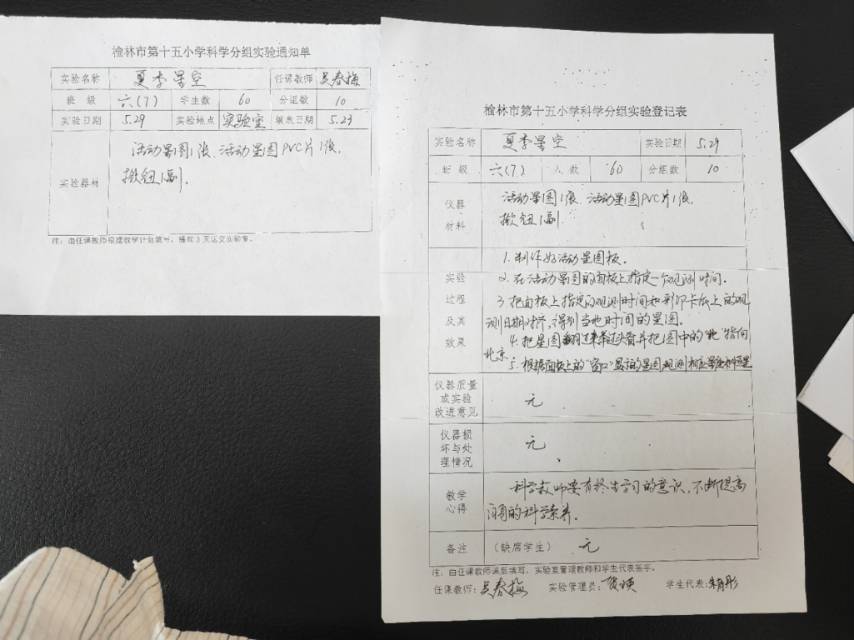 榆林市第十五小学科学分组实验通知单
实验名称 夏季星空 任课教师 吴春梅
班级 六(7) 学生数 60 分组数 10
实验日期 5.29 实验地点 实验室 填表日期 5.23
实验器材 活动星图1张、活动星图PVC片1张、
揿钮1副.
注：由任课教师根据教学计划填写，提前3天送交实验室。
榆林市第十五小学科学分组实验登记表
实验名称 夏季星空 实验日期 5.29
班级 六(7) 人数 60 分组数 10
仪器材料 活动星图1张、活动星图PVC片1张、
揿钮1副.
实验过程及其效果
1. 制作好活动星图板.
2. 在活动星图的面板上指定一个观测时间.
3. 把面板上指定的观测时间和彩印卡纸上的观
测日期对齐,得到当地时间的星图.
4. 把星图翻过来举过头看并把图中的"北"指向
北京.
5. 根据面板上的"窗口"显示的星图观测
仪器质量或实验改进意见 无
仪器损坏与处理情况 无
教学心得 科学教师要有终生学习的意识,不断提高
自己的科学素养.
备注 (缺席学生) 无
注：由任课教师课后填写，实验室管理教师和学生代表签字。
任课教师: 吴春梅 实验管理员: 学生代表: